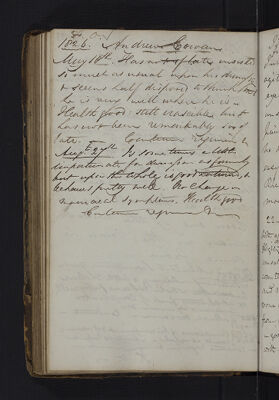 1826. Andrew Cowan
May 18th. Has not of late insisted
so much as usual upon his
& seems half disposed to think that
he is very well where he is
Health good. Still excitable but
has not been remarkably so of
late. Continue Regimen
Augt 27th. Is sometimes a little
importunate for dismission as formerly
but upon the whole is good natured &
behaves pretty well. No change in
mental symptoms. Health good
Continue Regimen